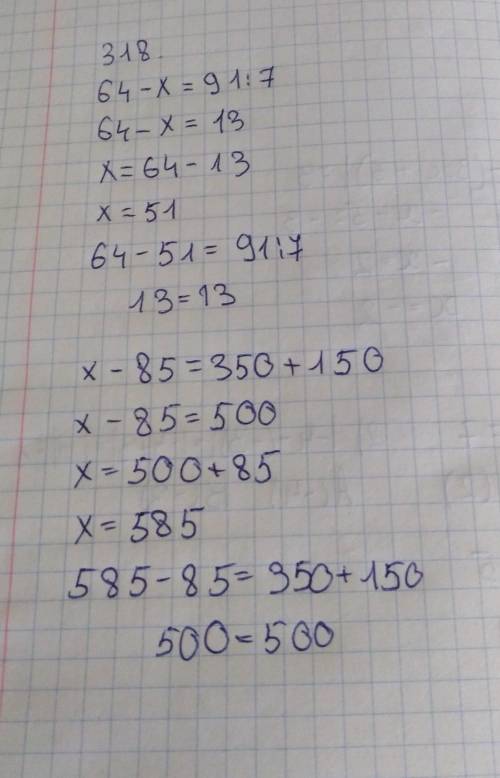 318.
64-x=91:7
64-x=13
x=64-13
x=51
64-51=91:7
13=13
x-85=350+150
x-85=500
x=500+85
x=585
585-85=350+150
500=500